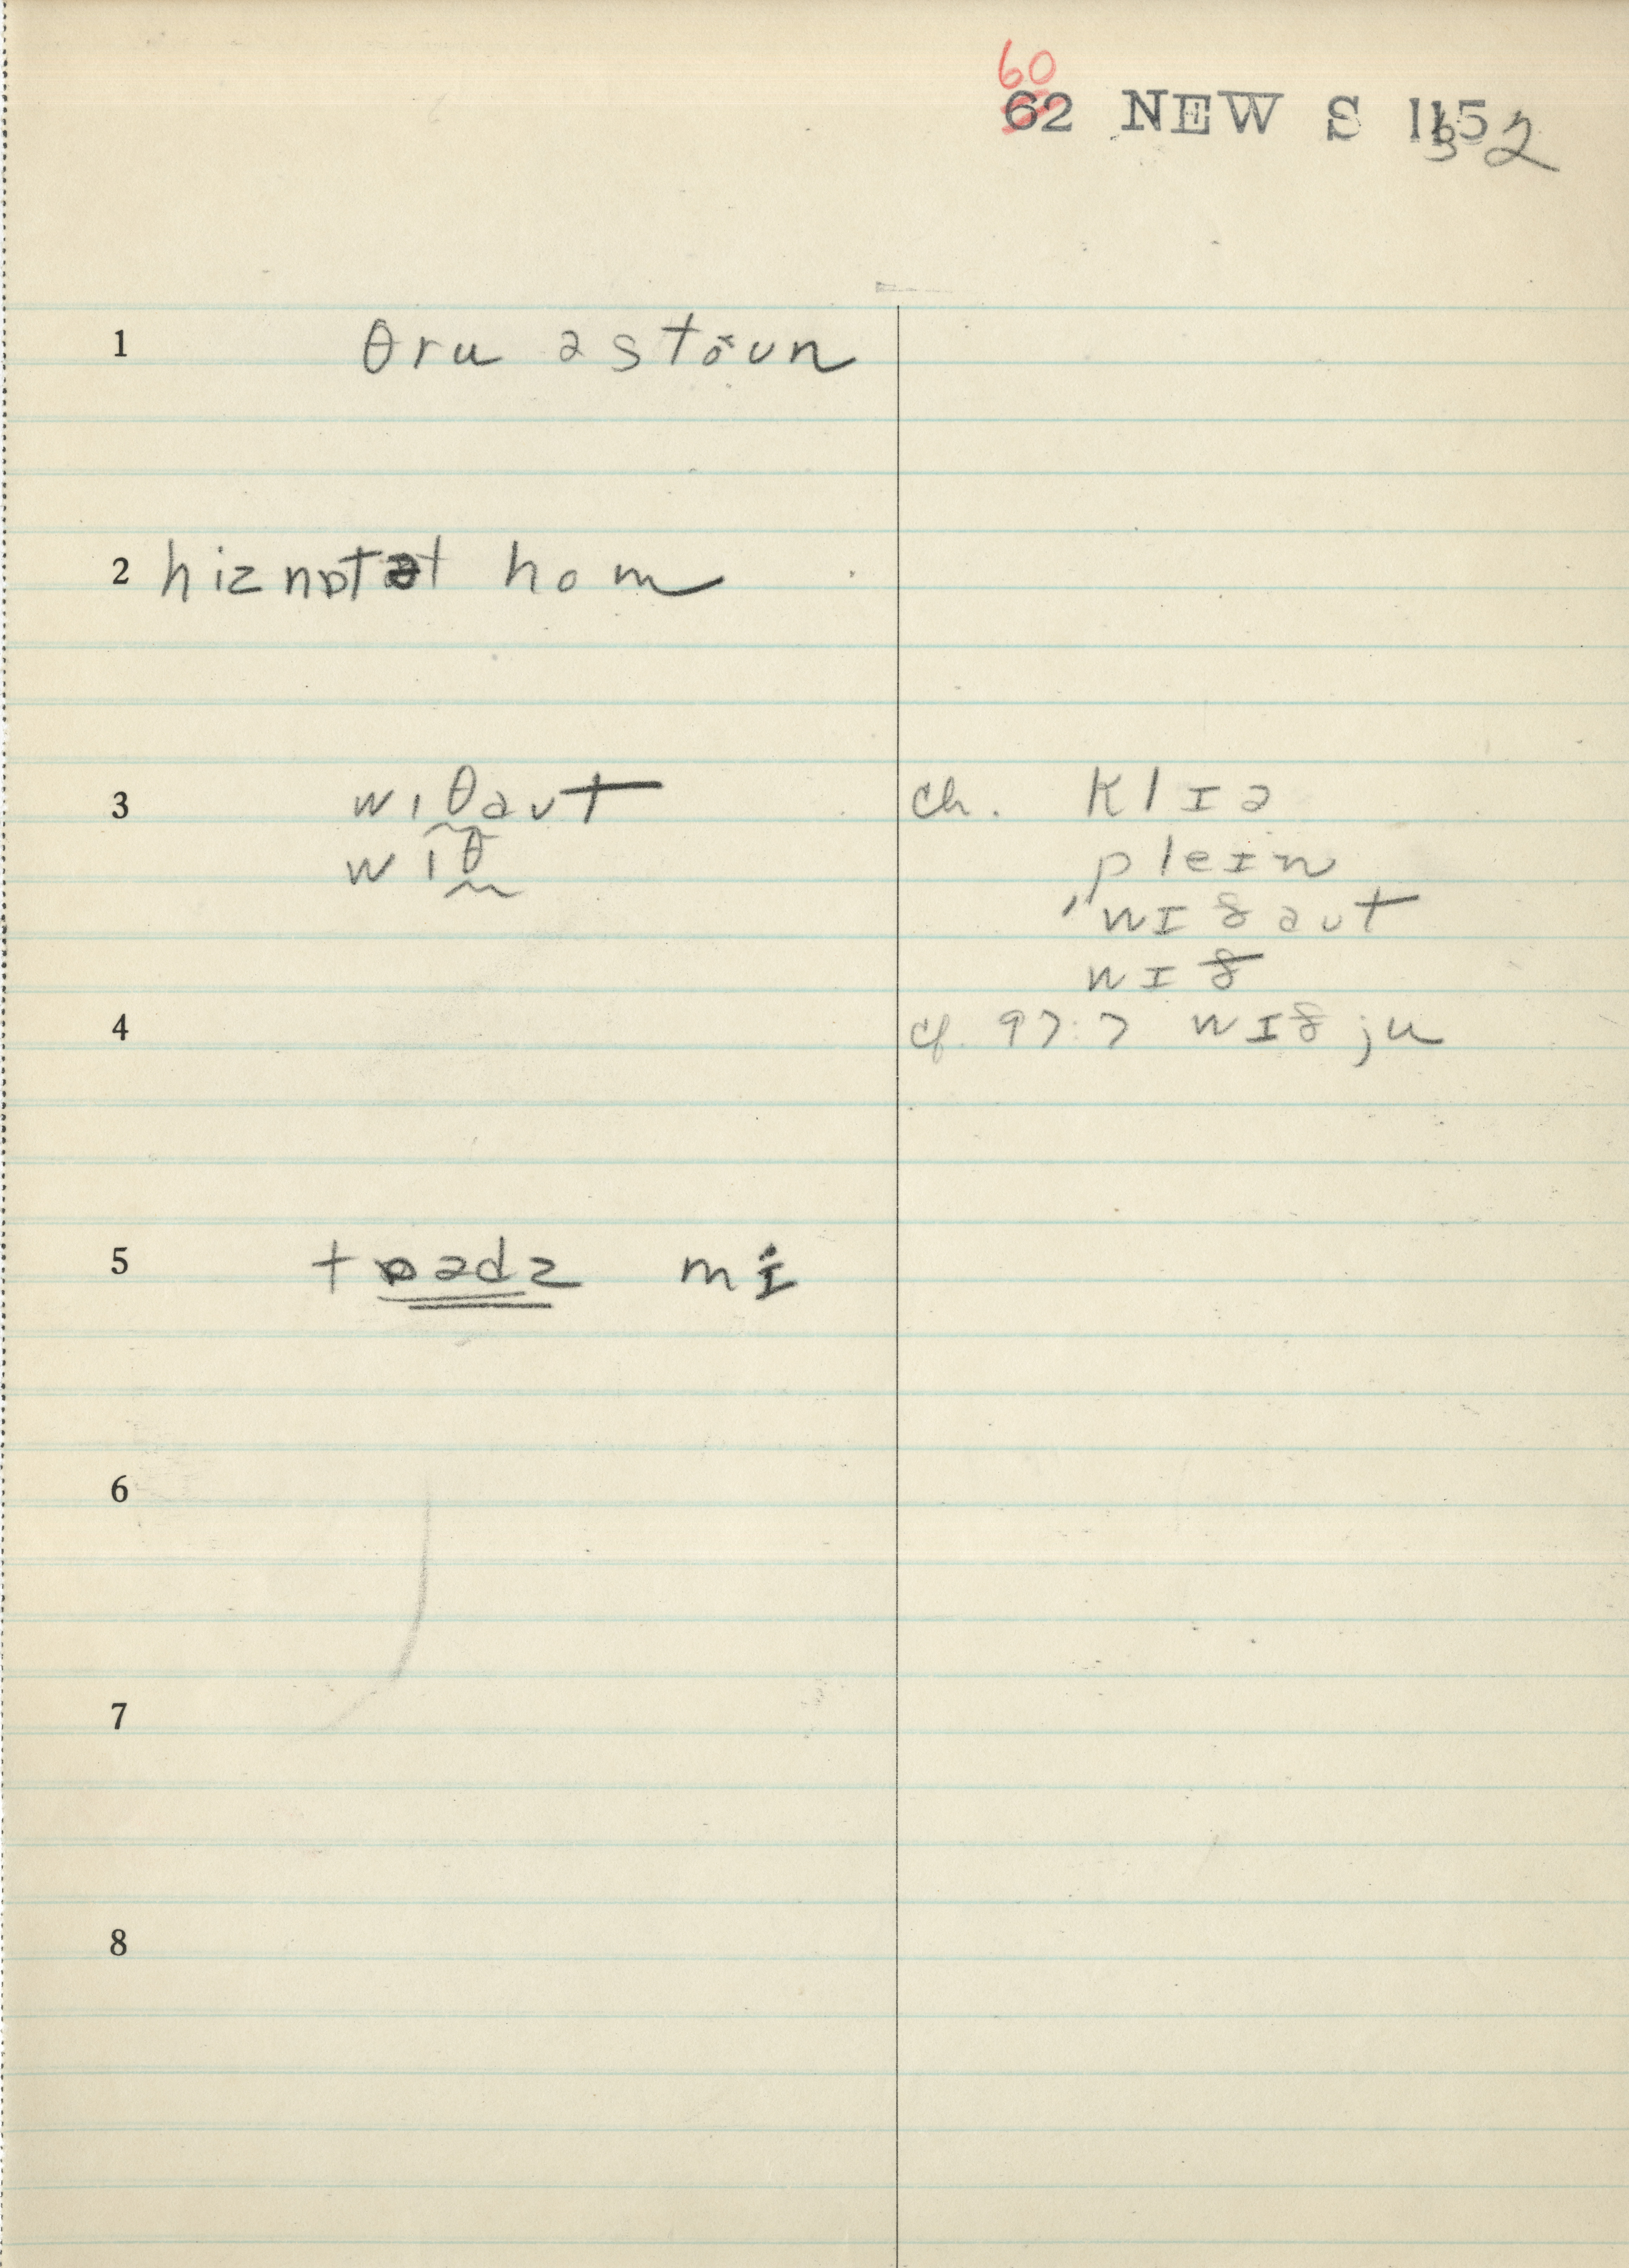 60
62 NEW S 1352
1 θru ə stoun
2 hiznɒtət hom
3 wɪθaut ch. klɪə
wɪθ pleɪn
ˈwɪðaut
wɪð
4 cf. 97:7 wɪð ju
5 tɒədz mɪ
6
7
8